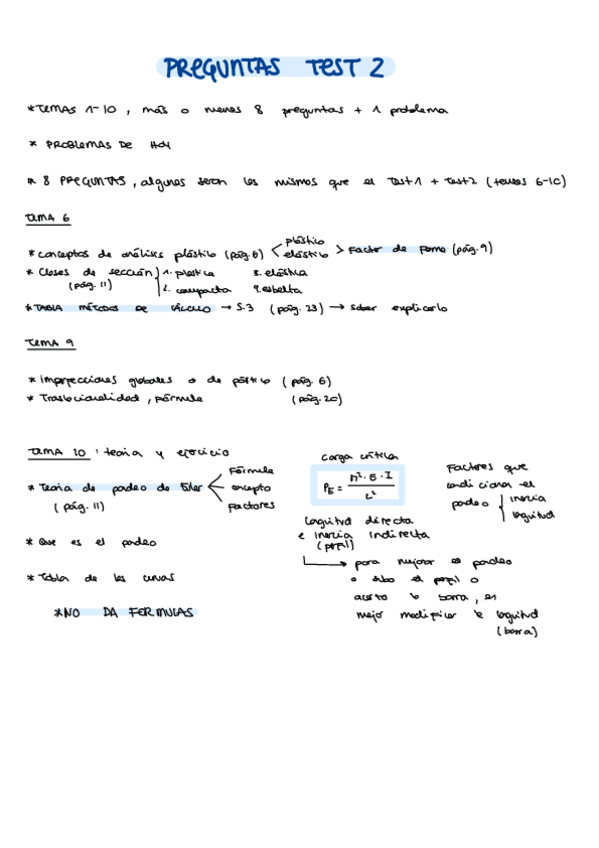 PREGUNTAS TEST 2
* TEMAS 1-10, más o menos 8 preguntas + 1 problema
* PROBLEMAS DE HOY
* 8 PREGUNTAS, algunas seran las mismas que el Test1 + Test2 (temas 6-10)
TEMA 6
* conceptos de análisis plástico (pág.8) < plástico elástico > Factor de Forma (pág.9)
* Clases de sección (pág.11) 1. plástica 3. elástica
2. compacta 4. esbelta
* TABLA MÉTODOS DE CÁLCULO → 5.3 (pág.23) → saber explicarlo
TEMA 9
* imperfecciones globales o de pórtico (pág.6)
* Traslacionalidad, fórmula (pág.20)
TEMA 10: teoria y ejercicio
* Teoria de pandeo de Euler (pág.11) < Fórmula
concepto
Factores
carga crítica
PE = π²·E·I / L²
Longitud directa
e inercia indirecta
(perfil)
→ para mejorar el pandeo
o subo el perfil o
acorto la barra, es
mejor modificar la longitud
(barra)
Factores que
condicionan el
pandeo { inercia
longitud
* Que es el pandeo
* Tabla de las curvas
*NO DA FORMULAS